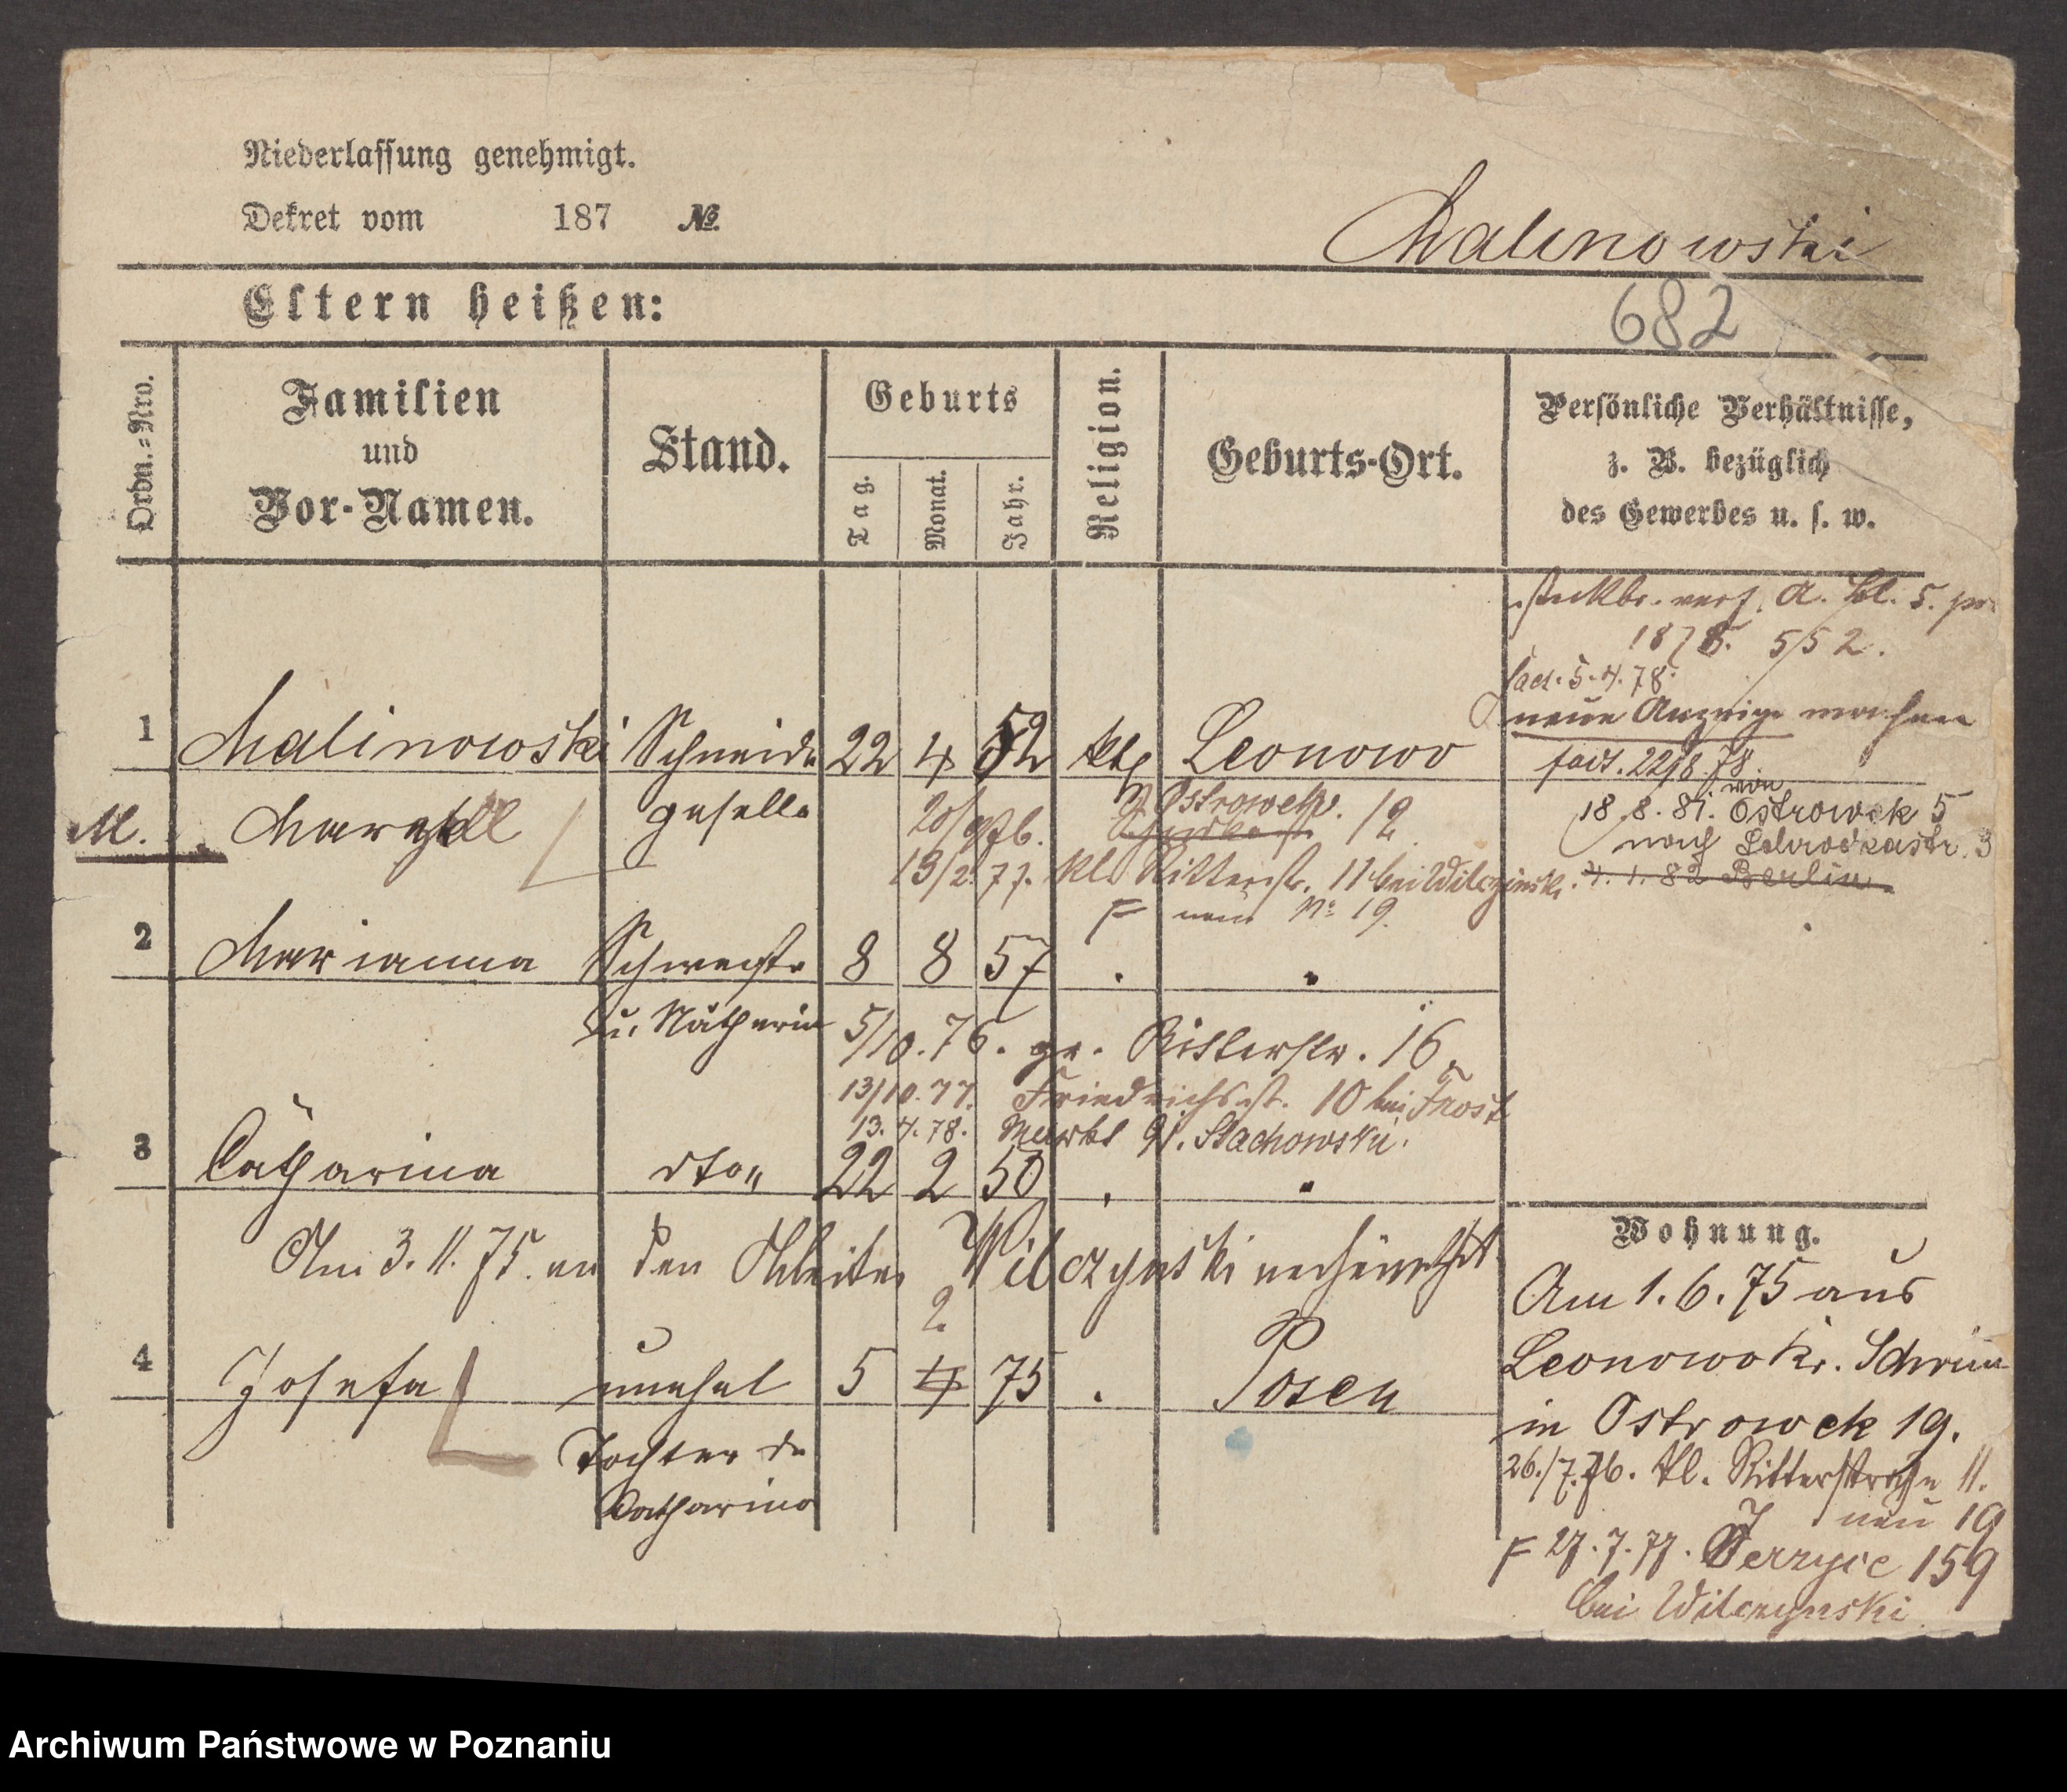 Niederlassung genehmigt.
Dekret vom 187 №.
Malinowski
Eltern heißen:
682
Ordn.-Nro.
Familien
und
Vor-Namen.
Stand.
Geburts
Tag.
Monat.
Jahr.
Religion.
Geburts-Ort.
Persönliche Verhältnisse,
z. B. bezüglich
des Gewerbes u. s. w.
A. Bl. 5.
1878. 552.
fact. 5.4.78.
neue Anzeige machen
1 Malinowski Schneider 22 4 52 kth Leonowo
fact. 22/8.78.
M. Marzell geselle
20/9 76. Ostrowek. 12
von
18.8.81. Ostrowek 5
nach Schrodkastr. 3
19/2. 77. Kl. Ritterstr. 11 bei Wilczinski.
4.1.82 Berlin
F neue No 19.
2 Marianna Schwester 8 8 57 . "
u. Nätherin 5/10.76. gr. Ritterstr. 16
13/10.77. Friedrichsst. 10 bei Frost
13.4.78. Markt 91. Stachowski.
3 Catharina dto„ 22 2 50 . "
Am 3.11.75. an den Arbeiter Wilczynski verheirathet
2
4 Josefa unehel 5 4 75 . Posen
Tochter der
Catharina
Wohnung.
Am 1.6.75 aus
Leonowo Kr. Schrimm
in Ostrowek 19.
26./7.76. Kl. Ritterstraße 11.
neu 19
F 27.7.77. Jerzyce 159
bei Wilczynski
Archiwum Państwowe w Poznaniu